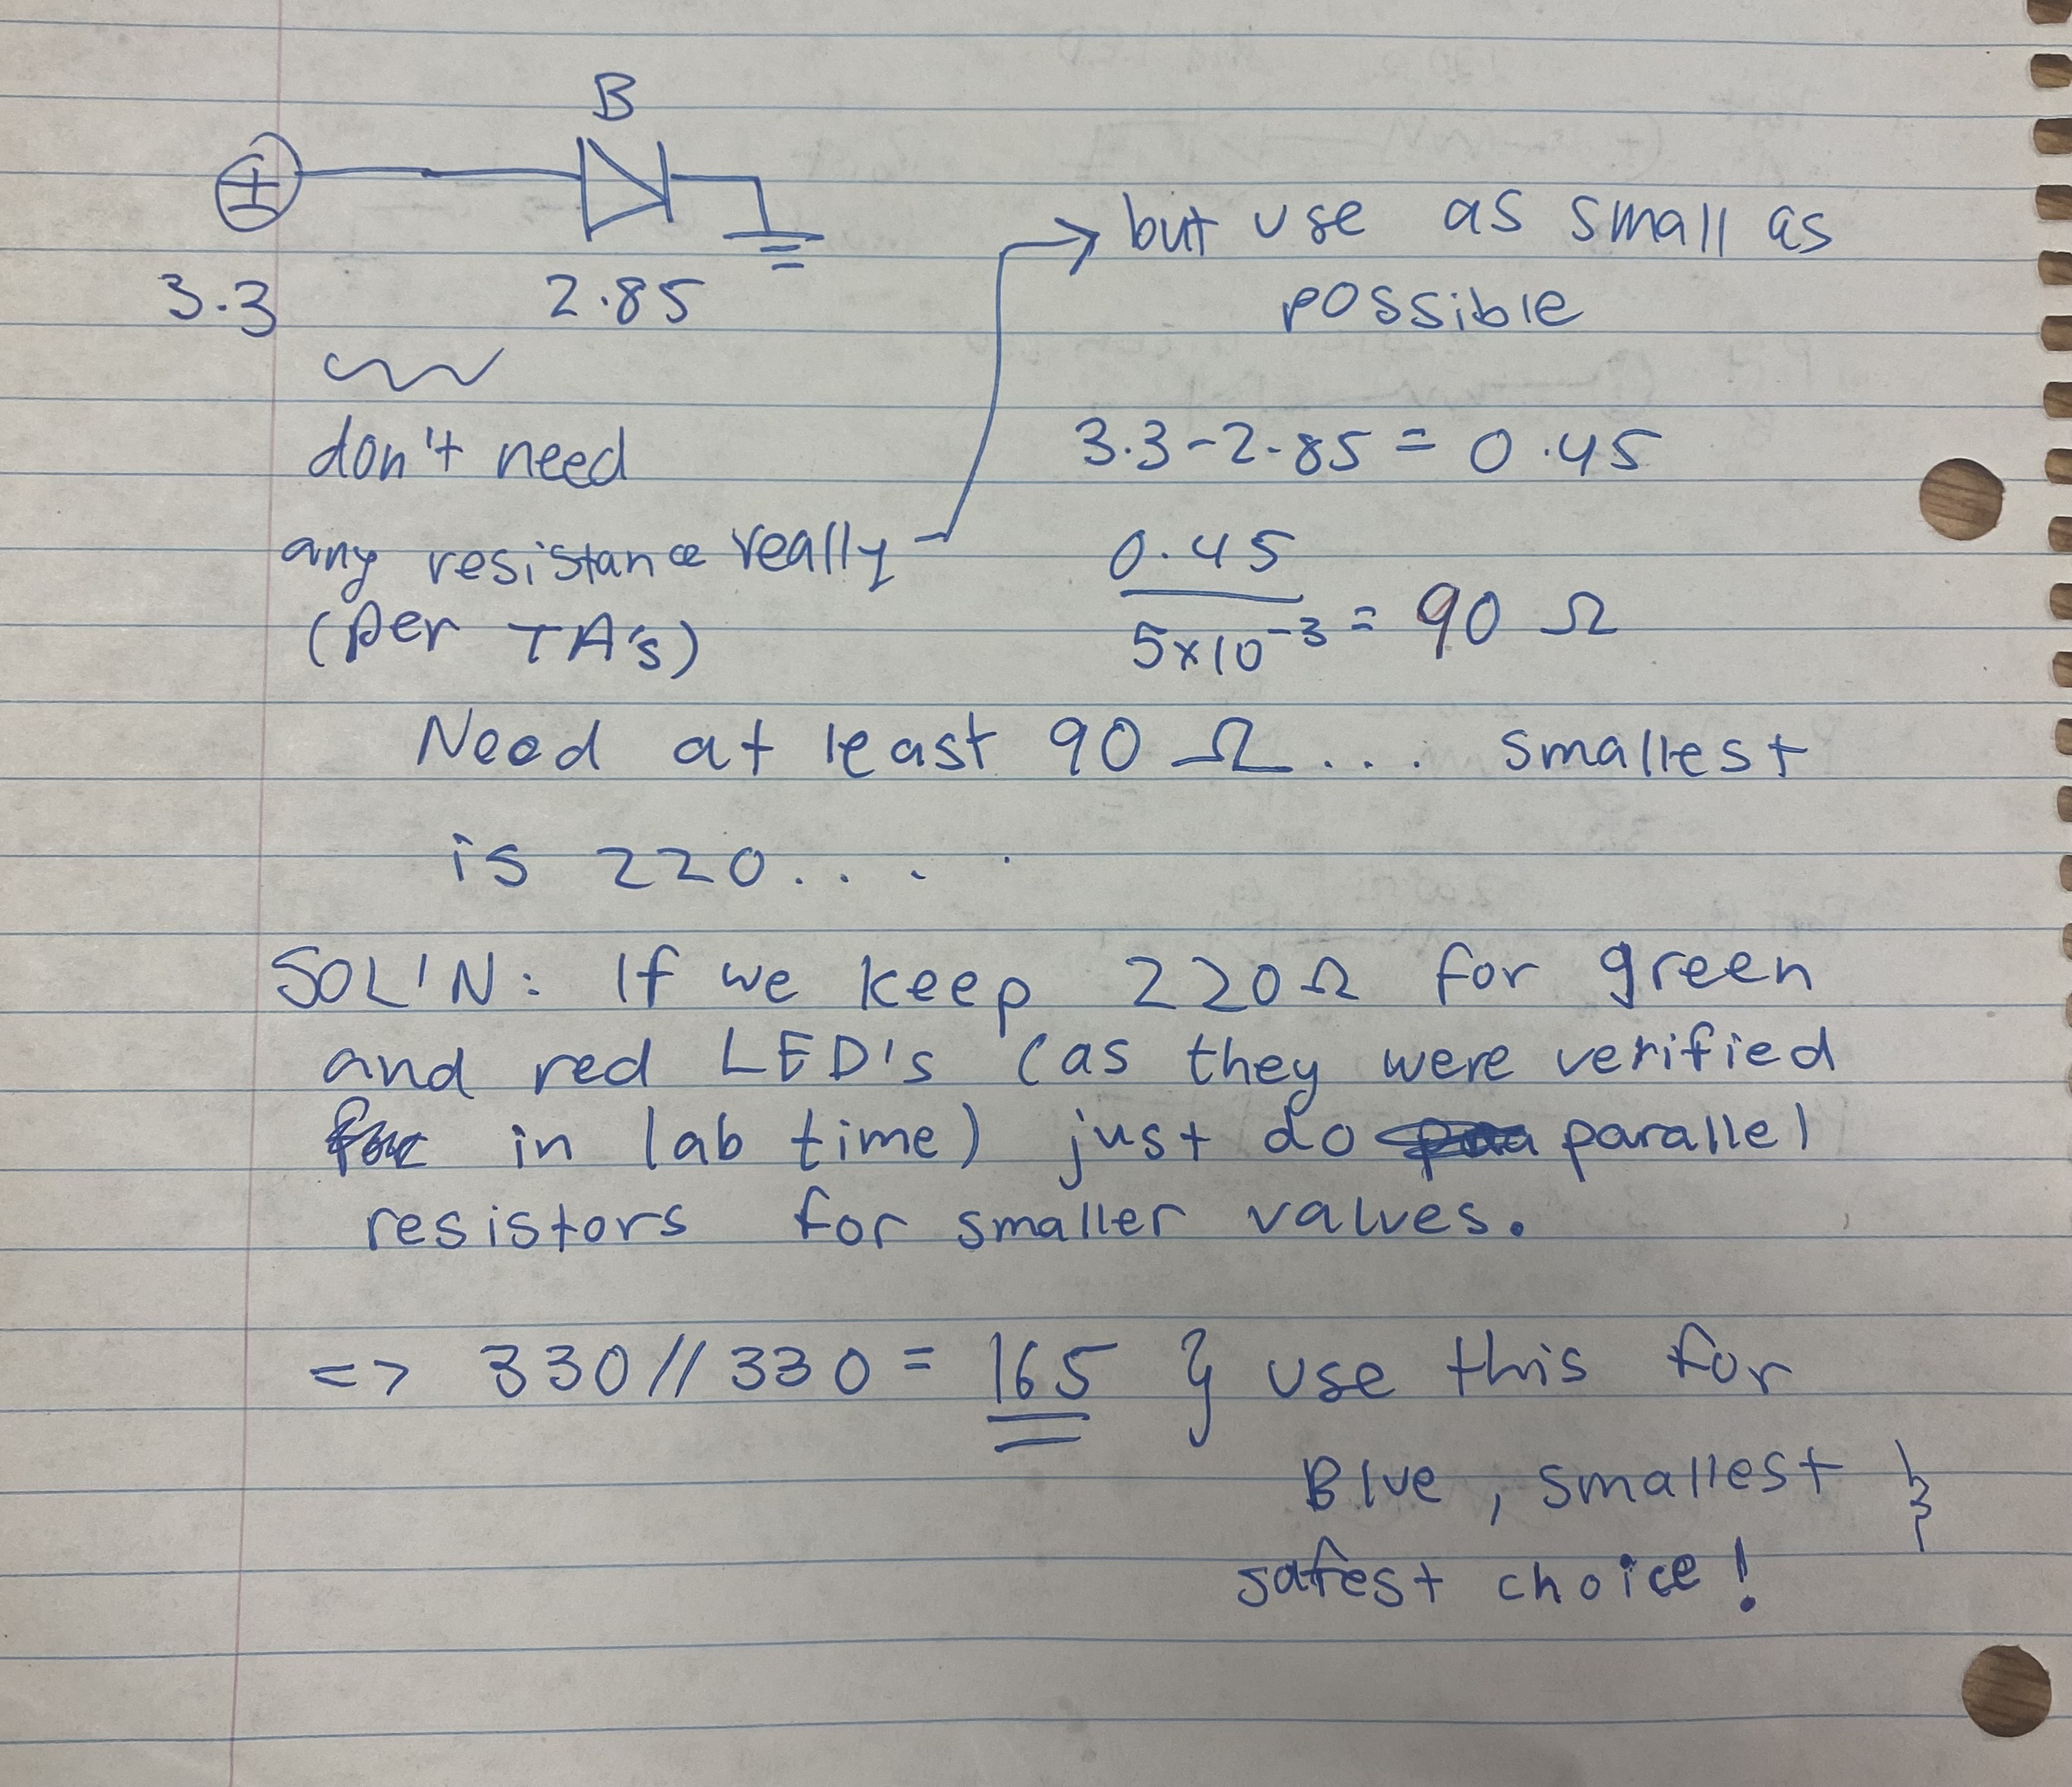 B
3.3
2.85
don't need
any resistance really
(per TA's)
but use as small as
possible
3.3-2.85 = 0.45
0.45
5x10⁻³ = 90 Ω
Need at least 90 Ω... smallest
is 220...
SOL'N: If we keep 220Ω for green
and red LED's (as they were verified
in lab time) just do parallel
resistors for smaller values.
=> 330//330 = 165 } use this for
Blue, smallest &
safest choice!